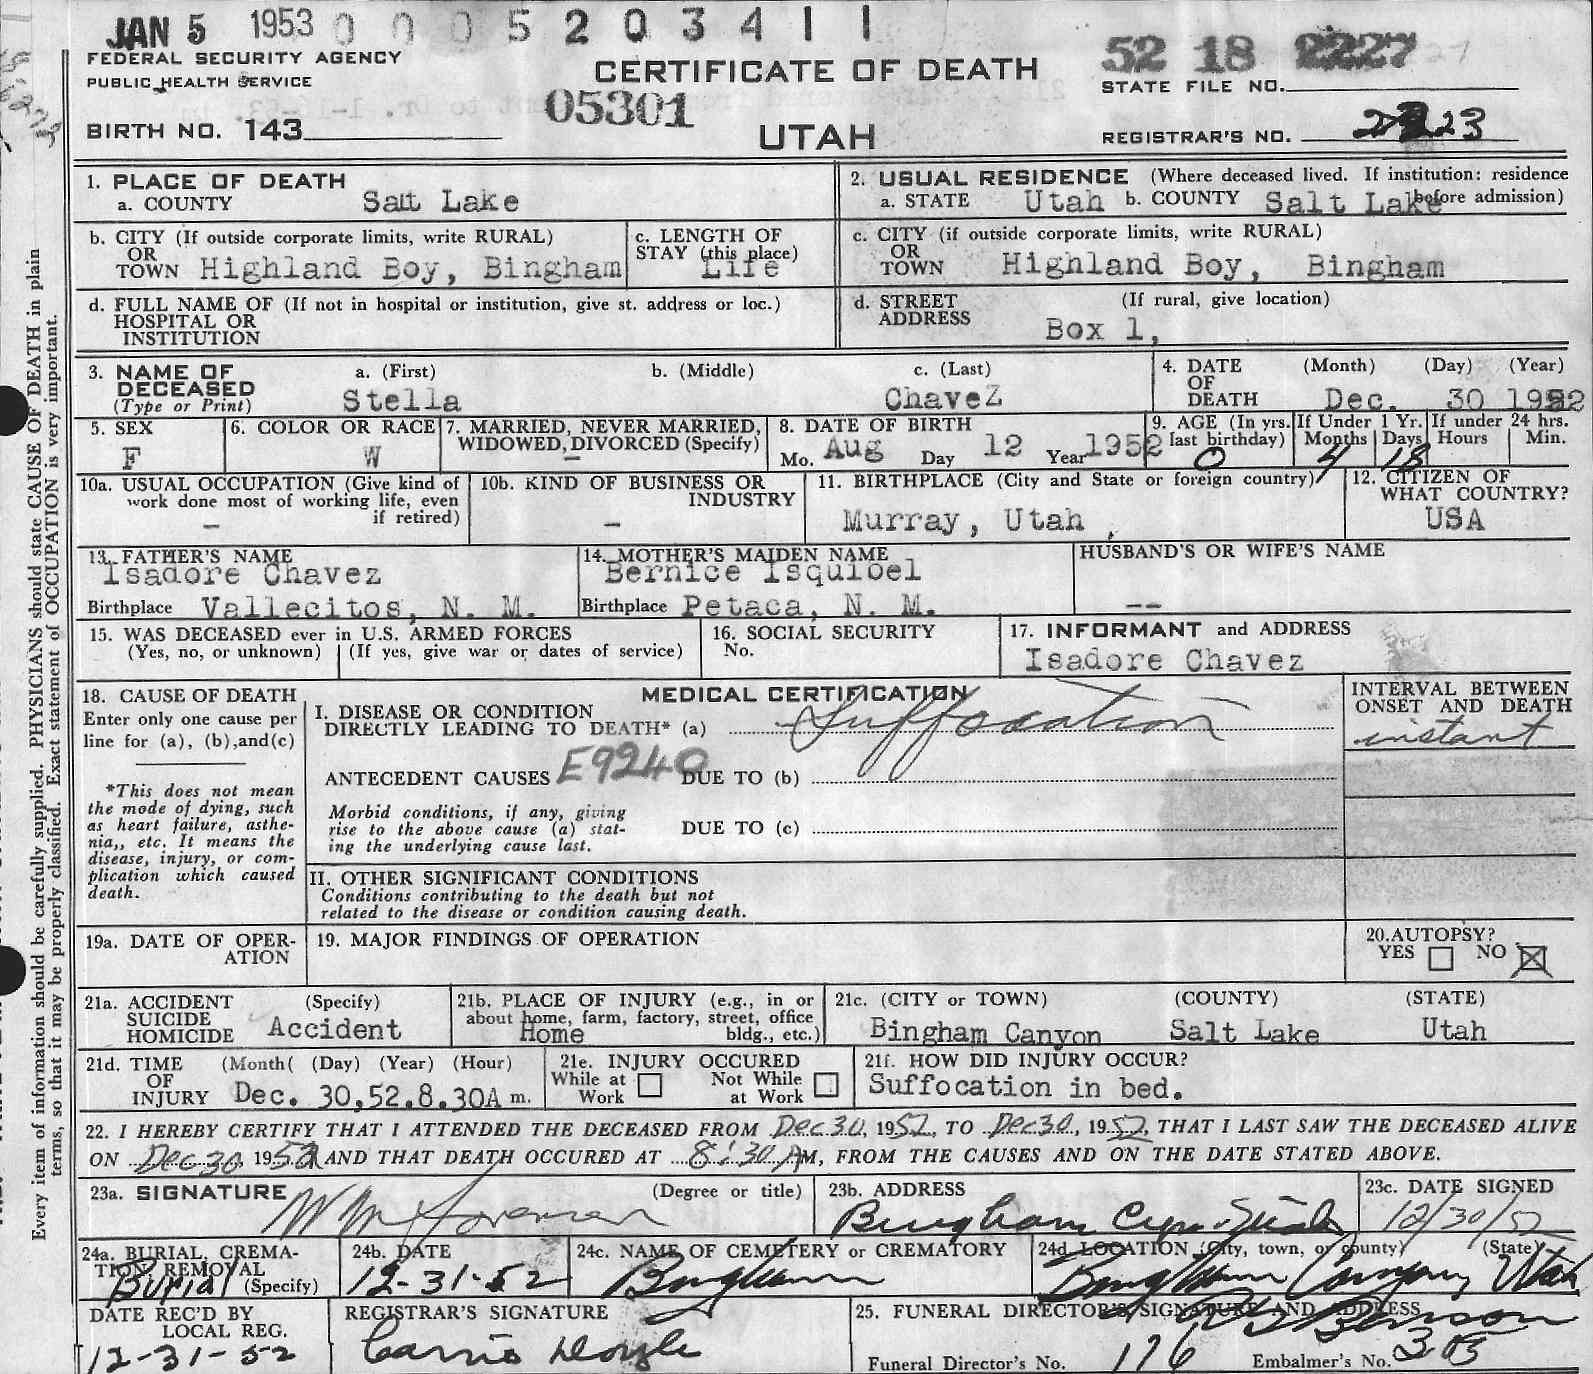 JAN 5 1953 0 0 0 5 2 0 3 4 1 1
FEDERAL SECURITY AGENCY
PUBLIC HEALTH SERVICE
BIRTH NO. 143
CERTIFICATE OF DEATH
05301
UTAH
52 18 2227
STATE FILE NO.
REGISTRAR'S NO. 23
Every item of information should be carefully supplied. PHYSICIANS should state CAUSE OF DEATH in plain
terms, so that it may be properly classified. Exact statement of OCCUPATION is very important.
1. PLACE OF DEATH
a. COUNTY Salt Lake
2. USUAL RESIDENCE (Where deceased lived. If institution: residence
before admission)
a. STATE Utah b. COUNTY Salt Lake
b. CITY (If outside corporate limits, write RURAL)
OR
TOWN Highland Boy, Bingham
c. LENGTH OF
STAY (this place)
Life
c. CITY (if outside corporate limits, write RURAL)
OR
TOWN Highland Boy, Bingham
d. FULL NAME OF (If not in hospital or institution, give st. address or loc.)
HOSPITAL OR
INSTITUTION
d. STREET (If rural, give location)
ADDRESS
Box 1,
3. NAME OF a. (First) b. (Middle) c. (Last)
DECEASED
(Type or Print) Stella ChaveZ
4. DATE (Month) (Day) (Year)
OF
DEATH Dec. 30 1952
5. SEX
F
6. COLOR OR RACE
W
7. MARRIED, NEVER MARRIED,
WIDOWED, DIVORCED (Specify)
–
8. DATE OF BIRTH
Mo. Aug Day 12 Year 1952
9. AGE (In yrs. If Under 1 Yr. If under 24 hrs.
last birthday) Months Days Hours Min.
0 4 18
10a. USUAL OCCUPATION (Give kind of
work done most of working life, even
if retired)
–
10b. KIND OF BUSINESS OR
INDUSTRY
–
11. BIRTHPLACE (City and State or foreign country)
Murray, Utah
12. CITIZEN OF
WHAT COUNTRY?
USA
13. FATHER'S NAME
Isadore Chavez
Birthplace Vallecitos, N. M.
14. MOTHER'S MAIDEN NAME
Bernice Isquibel
Birthplace Petaca, N. M.
HUSBAND'S OR WIFE'S NAME
--
15. WAS DECEASED ever in U.S. ARMED FORCES
(Yes, no, or unknown) (If yes, give war or dates of service)
16. SOCIAL SECURITY
No.
17. INFORMANT and ADDRESS
Isadore Chavez
18. CAUSE OF DEATH
Enter only one cause per
line for (a), (b), and(c)
*This does not mean
the mode of dying, such
as heart failure, asthe-
nia,, etc. It means the
disease, injury, or com-
plication which caused
death.
MEDICAL CERTIFICATION
I. DISEASE OR CONDITION
DIRECTLY LEADING TO DEATH* (a) Suffocation
ANTECEDENT CAUSES E9240 DUE TO (b)
Morbid conditions, if any, giving
rise to the above cause (a) stat-
ing the underlying cause last.
DUE TO (c)
II. OTHER SIGNIFICANT CONDITIONS
Conditions contributing to the death but not
related to the disease or condition causing death.
INTERVAL BETWEEN
ONSET AND DEATH
instant
19a. DATE OF OPER-
ATION
19. MAJOR FINDINGS OF OPERATION
20. AUTOPSY?
YES NO
21a. ACCIDENT (Specify)
SUICIDE
HOMICIDE Accident
21b. PLACE OF INJURY (e.g., in or
about home, farm, factory, street, office
bldg., etc.)
Home
21c. (CITY or TOWN) (COUNTY) (STATE)
Bingham Canyon Salt Lake Utah
21d. TIME (Month( (Day) (Year) (Hour)
OF
INJURY Dec. 30,52.8.30A m.
21e. INJURY OCCURED
While at Work Not While at Work
21f. HOW DID INJURY OCCUR?
Suffocation in bed.
22. I HEREBY CERTIFY THAT I ATTENDED THE DECEASED FROM Dec 30, 1952, TO Dec 30, 1952, THAT I LAST SAW THE DECEASED ALIVE
ON Dec 30 1952 AND THAT DEATH OCCURED AT 8:30 AM, FROM THE CAUSES AND ON THE DATE STATED ABOVE.
23a. SIGNATURE (Degree or title)
23b. ADDRESS
Bingham
23c. DATE SIGNED
12/30/52
24a. BURIAL, CREMA-
TION, REMOVAL
(Specify)
Burial
24b. DATE
12-31-52
24c. NAME OF CEMETERY or CREMATORY
Bingham
24d LOCATION (City, town, or county) (State)
Bingham Canyon, Utah
DATE REC'D BY
LOCAL REG.
12-31-52
REGISTRAR'S SIGNATURE
Carrie Doyle
25. FUNERAL DIRECTOR'S SIGNATURE AND ADDRESS
Benson
Funeral Director's No. 176 Embalmer's No. 363